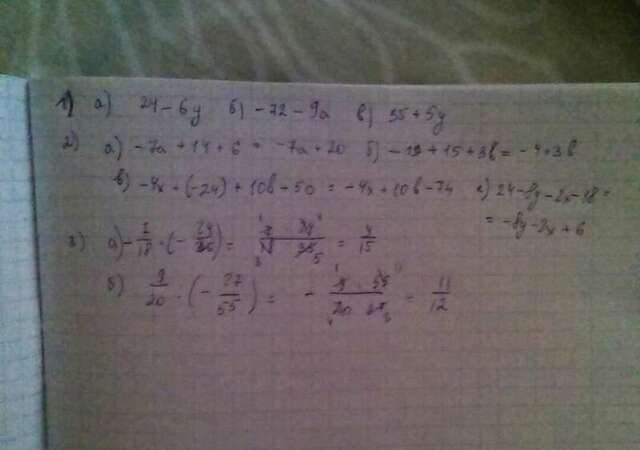 1) а) 24 - 6y б) -72 - 9a в) 35 + 5y
2) а) -7a + 14 + 6 = -7a + 20 б) -19 + 15 + 3b = -4 + 3b
в) -4x + (-24) + 10b - 50 = -4x + 10b - 74 г) 24 - 8y - 2x - 18 =
= -8y - 2x + 6
3) а) - /18 · (- 24/ ) = = /15
б) 9/20 : (- 27/55) = - 9 · 55 / 20 · 27 = 11/12